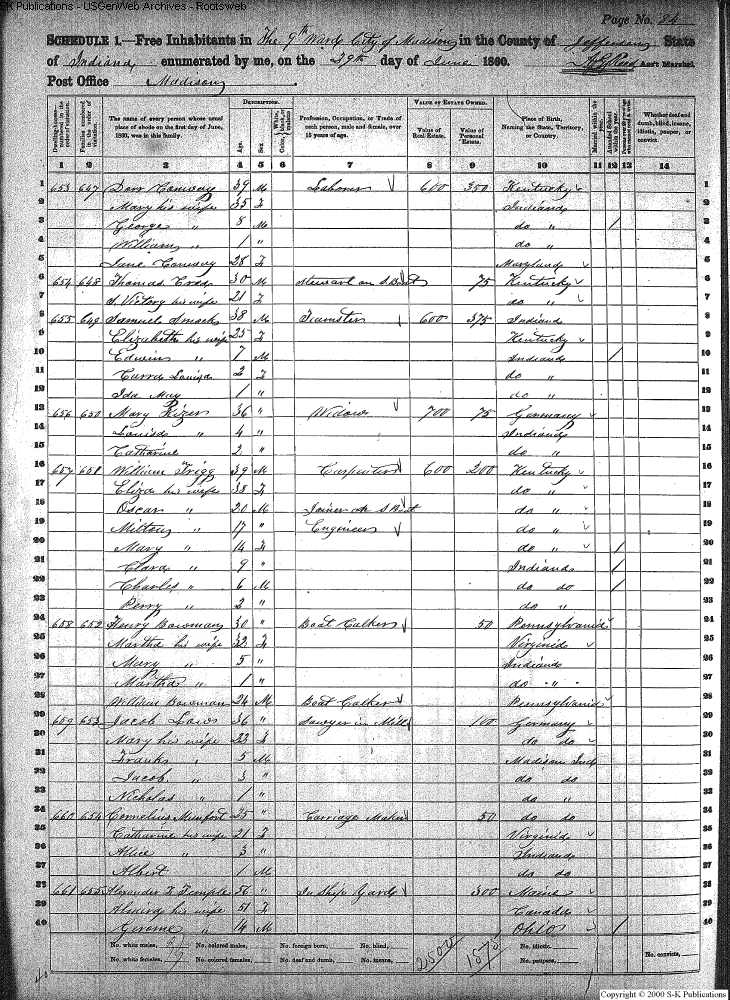 S-K Publications - USGenWeb Archives - Rootsweb
Page No. 84
SCHEDULE 1.—Free Inhabitants in The 9th Ward City of Madison in the County of Jefferson State
of Indiana enumerated by me, on the 29th day of June 1860. Ass't Marshal.
Post Office Madison
Dwelling-houses—numbered in the order of visitation. Families numbered in the order of visitation. The name of every person whose usual place of abode on the first day of June, 1860, was in this family. DESCRIPTION. Age. Sex. Color, White, black, or mulatto. Profession, Occupation, or Trade of each person, male and female, over 15 years of age. VALUE OF ESTATE OWNED. Value of Real Estate. Value of Personal Estate. Place of Birth, Naming the State, Territory, or Country. Married within the year. Whether deaf and dumb, blind, insane, idiotic, pauper, or convict.
1 2 3 4 5 6 7 8 9 10 11 12 13 14
1 653 647 39 M Laborer 600 350 Kentucky 1
2 Mary his wife 35 F Indiana 2
3 George " 8 M do " / 3
4 William " 1 " do " 4
5 Jane Conway 28 F Maryland 5
6 654 648 Thomas 30 M Stewart on S Boat 75 Kentucky 6
7 S. Victory his wife 21 F do " 7
8 655 649 Samuel 38 M Teamster 600 375 Indiana 8
9 Elizabeth his wife 25 F Kentucky 9
10 Edwin " 7 M Indiana / 10
11 Louisa 2 F do " 11
12 Ida May 1 " do " 12
13 656 650 Mary Kizer 36 " Widow 700 75 Germany 13
14 Louisa " 4 " Indiana 14
15 Catharine 2 " do " 15
16 657 651 William Trigg 39 M Carpenter 600 200 Kentucky 16
17 Eliza his wife 38 F do " 17
18 Oscar " 20 M Joiner on S Boat do " 18
19 Milton " 17 " Engineer do " 19
20 Mary " 14 F do " / 20
21 Clara " 9 " Indiana / 21
22 Charles " 6 M do do / 22
23 Perry " 2 " do " 23
24 658 652 Henry Bowman 30 " Boat Calker 50 Pennsylvania 24
25 Martha his wife 32 F Virginia 25
26 Mary " 5 " Indiana 26
27 Martha " 1 " do " " 27
28 William Bowman 24 M Boat Calker Pennsylvania 28
29 659 653 Jacob Laws 36 " Sawyer in Mill 100 Germany 29
30 Mary his wife 23 F do do 30
31 Frank " 5 M Madison Ind 31
32 Jacob " 3 " do do 32
33 Nicholas " 1 " do " 33
34 660 654 Cornelius Munfort 25 " Carriage Maker 50 do do 34
35 Catharine his wife 21 F Virginia 35
36 Alice " 3 " Indiana 36
37 Albert 1 M do do 37
38 661 655 Alexander F Temple 56 " In Ship Yard 300 Maine 38
39 Almira his wife 51 F Canada 39
40 Gerome " 14 M Ohio / 40
No. white males, 21 No. colored males, No. foreign born, No. blind, 2500 1575 No. idiotic, No. convicts,
No. white females, 19 No. colored females, No. deaf and dumb, No. insane, No. paupers,
Copyright © 2000 S-K Publications